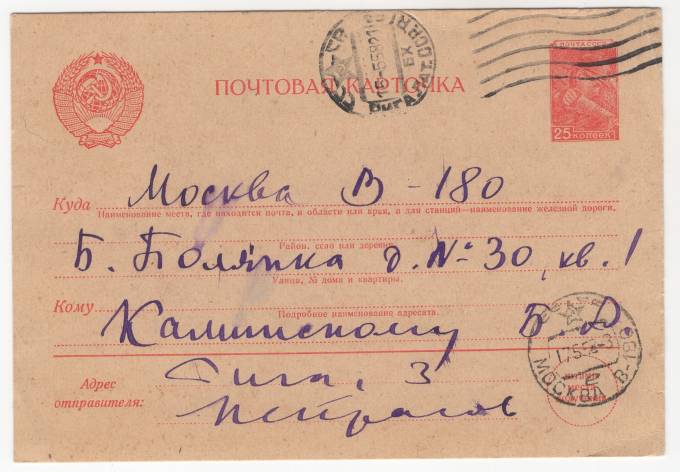 ПОЧТОВАЯ КАРТОЧКА
ПОЧТА СССР
25 КОПЕЕК
Куда Москва В-180
Наименование места, где находится почта, и области или края, а для станций—наименование железной дороги.
Район, село или деревня.
Б. Полянка д. № 30, кв. 1
Улица, № дома и квартиры.
Кому
Подробное наименование адресата.
Калинскому Б. Д.
МОСКВА
Адрес
отправителя:
Рига, 3
Некрасов